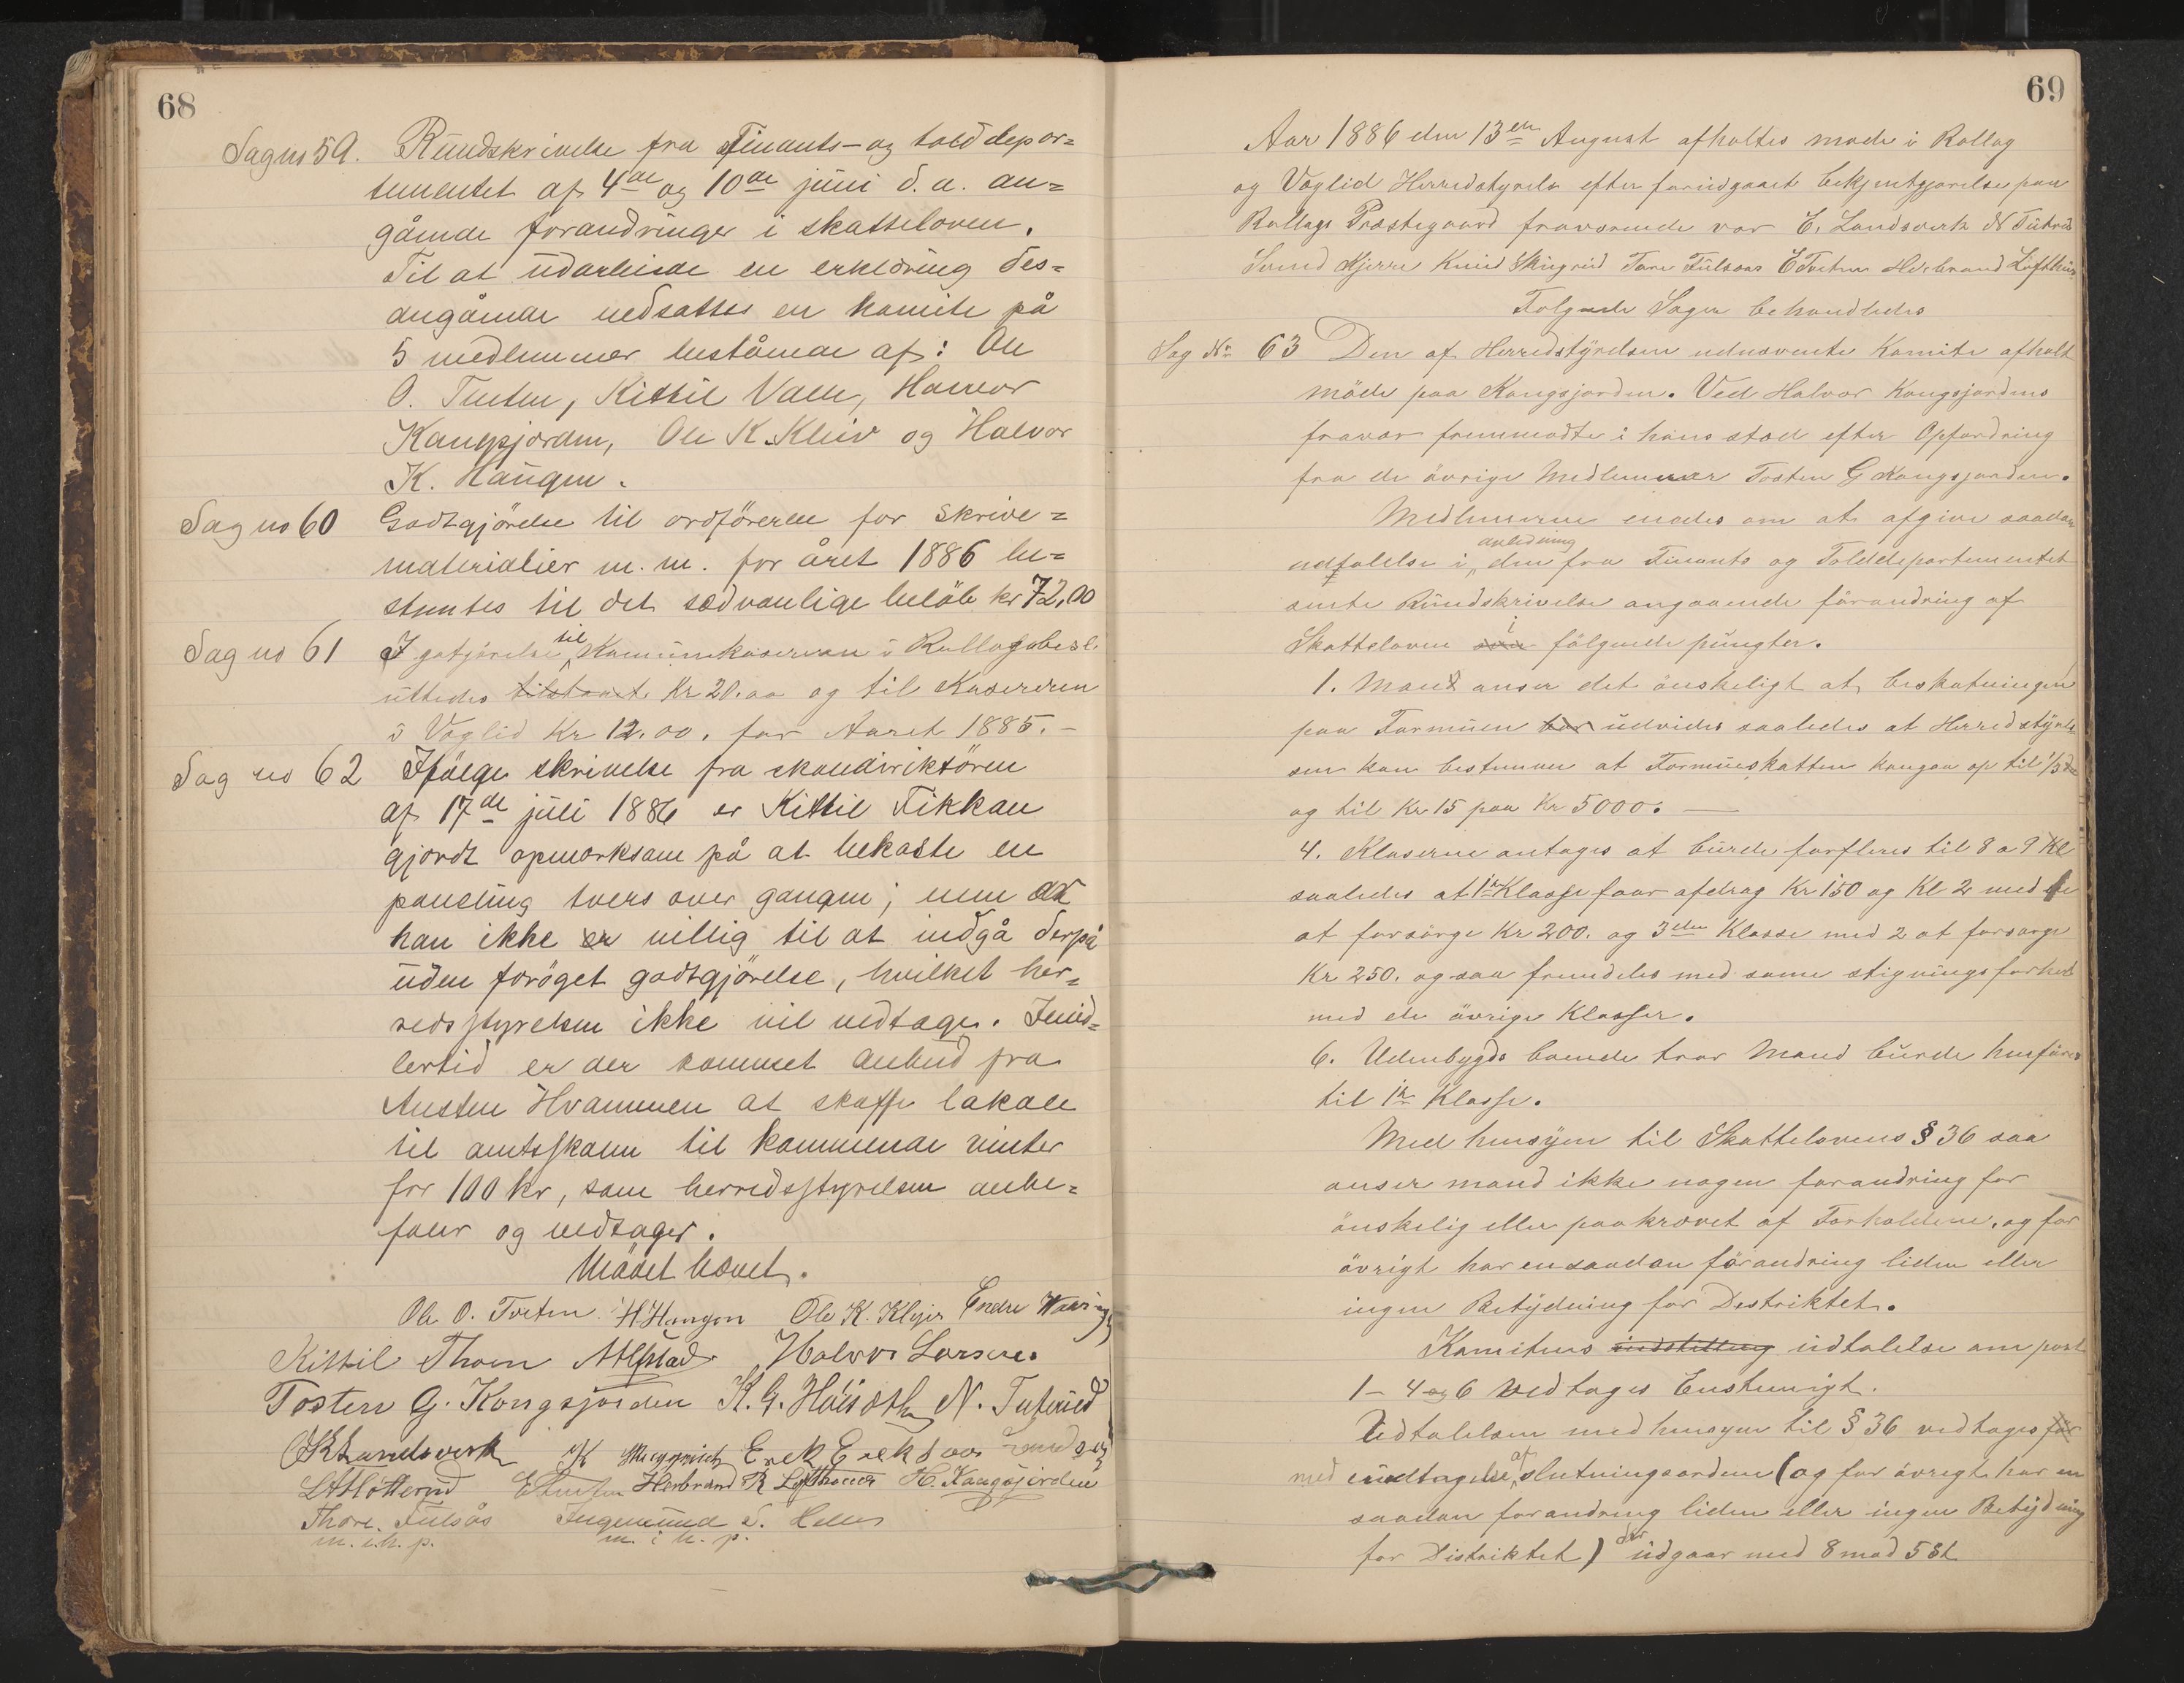 68
Sag no 59. Rundskrivelse fra Finants- og tolddepar=
tementet af 4de og 10de juni d. a. an=
gående forandringer i skatteloven.
Til at udarbeide en erklæring des=
angående nedsattes en komite på
5 medlemmer bestående af: Ole
O. Tveten, Kittil Valle, Halvor
Kongsjorden, Ole K. Kleiv og Halvor
K. Haugen.
Sag no 60 Godtgjörelse til ordföreren for skrive=
materialier m. m. for året 1886 be=
stemtes til det sædvanlige belöb kr 72,00
Sag no 61 I gotjörelse til Kommunekasereren i Rollag
uttedes tilstaaet Kr 20.00 og til Kasereren
i Væglid Kr 12.00. for Aaret 1885. -
Sag no 62 Ifölge skrivelse fra skoledirektören
af 17de juli 1886 er Kittil Fikkan
gjordt opmærksom på at bekoste en
paneling tvers over gangen; men
han ikke er villig til at indgå derpå
uden foröget godtgjörelse, hvilket her=
redsstyrelsen ikke vil vedtage. Imid=
lertid er der kommet anbud fra
Austen Hvammen at skaffe lokale
til amtsskolen til kommende vinter
for 100 kr, som herredsstyrelsen anbe=
faler og vedtager.
Mödet hævet.
Ole O. Tveten H. Haugen Ole K. Klejv Endre
Kittil Thoen Halvor Larsen
Tosten G. Kongsjorden K. G. N. Tuterud
Landsverk K Erek Erekson
Herbrand R Lofthuus H. Kongsjorden
Thore Fulsås Ingemund S.
m. i. h. p. m. i h. p.
69
Aar 1886 den 13de August afholtes møde i Rollag
og Væglid Herredstyrels efter forudgaaet bekjentgjørelse paa
Rollags Præstegaard fraværende var E. Landsverk N Tuterud
Svend Kjerre Knud Skugrud Tore Fulsaas E Tveten Herbrand Lofthus
Følgende Sager behandledes
Sag No 63 Den af Herredstyrelsen udnævente Komite afholt
möde paa Kongsjorden. Ved Halvor Kongsjordens
fravær fremmødte i hans sted efter Opfordring
fra de övrige Medlemmer Tosten G Kongsjorden.
Medlemerne enedes om at afgive saadan
udtalelse i anledning den fra Finants og Tolddepartementet
sente Rundskrivelse angaaende forandring af
Skatteloven i fölgende pungter.
1. Mand anser det önskeligt at beskatningen
paa Formuen bør udvides saaledes at Herredstyrel
sen kan bestemme at Formueskatten kangaa op til 1/3
og til Kr 15 paa Kr 5000. —
4. Klaserne antages at burde forfleres til 8 a 9 Kl
saaledes at 1te Klasse faar afdrag Kr 150 og Kl 2 med
at forsörge Kr 200. og 3den Klasse med 2 at forsørge
Kr 250. og saa fremdeles med same stigningsforhold
med de övrige Klasser.
6. Udenbygds boende tror Mand burde henføres
til 1te Klasse.
Med hensyn til Skattelovens § 36 saa
anser mand ikke nogen forandring for
önskelig eller paakrævet af Forholdene. og for
övrigt har en saadan forandring liden eller
ingen Betydning for Destriktet.
Komiteens indstilling udtalelse om post
1 - 4 og 6 vedtages Enstemigt.
Udtalelsen med hensyn til § 36 vedtages for
med undtagelse af slutningsordene (og for övrigt har en
saadan forandring liden eller ingen Betydning
for Distriktet) der udgaar med 8 mod 5 St